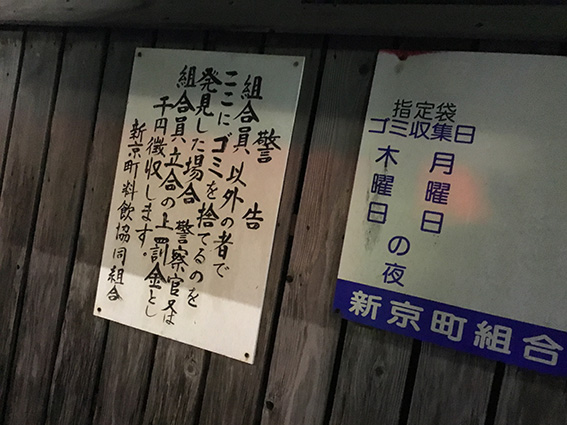 警告
組合員以外の者で
ここにゴミを捨てるのを
発見した場合 警察官又は
組合員立合の上罰金とし
千円徴収します。
新京町料飲協同組合
指定袋
ゴミ収集日
月曜日
木曜日
の夜
新京町組合